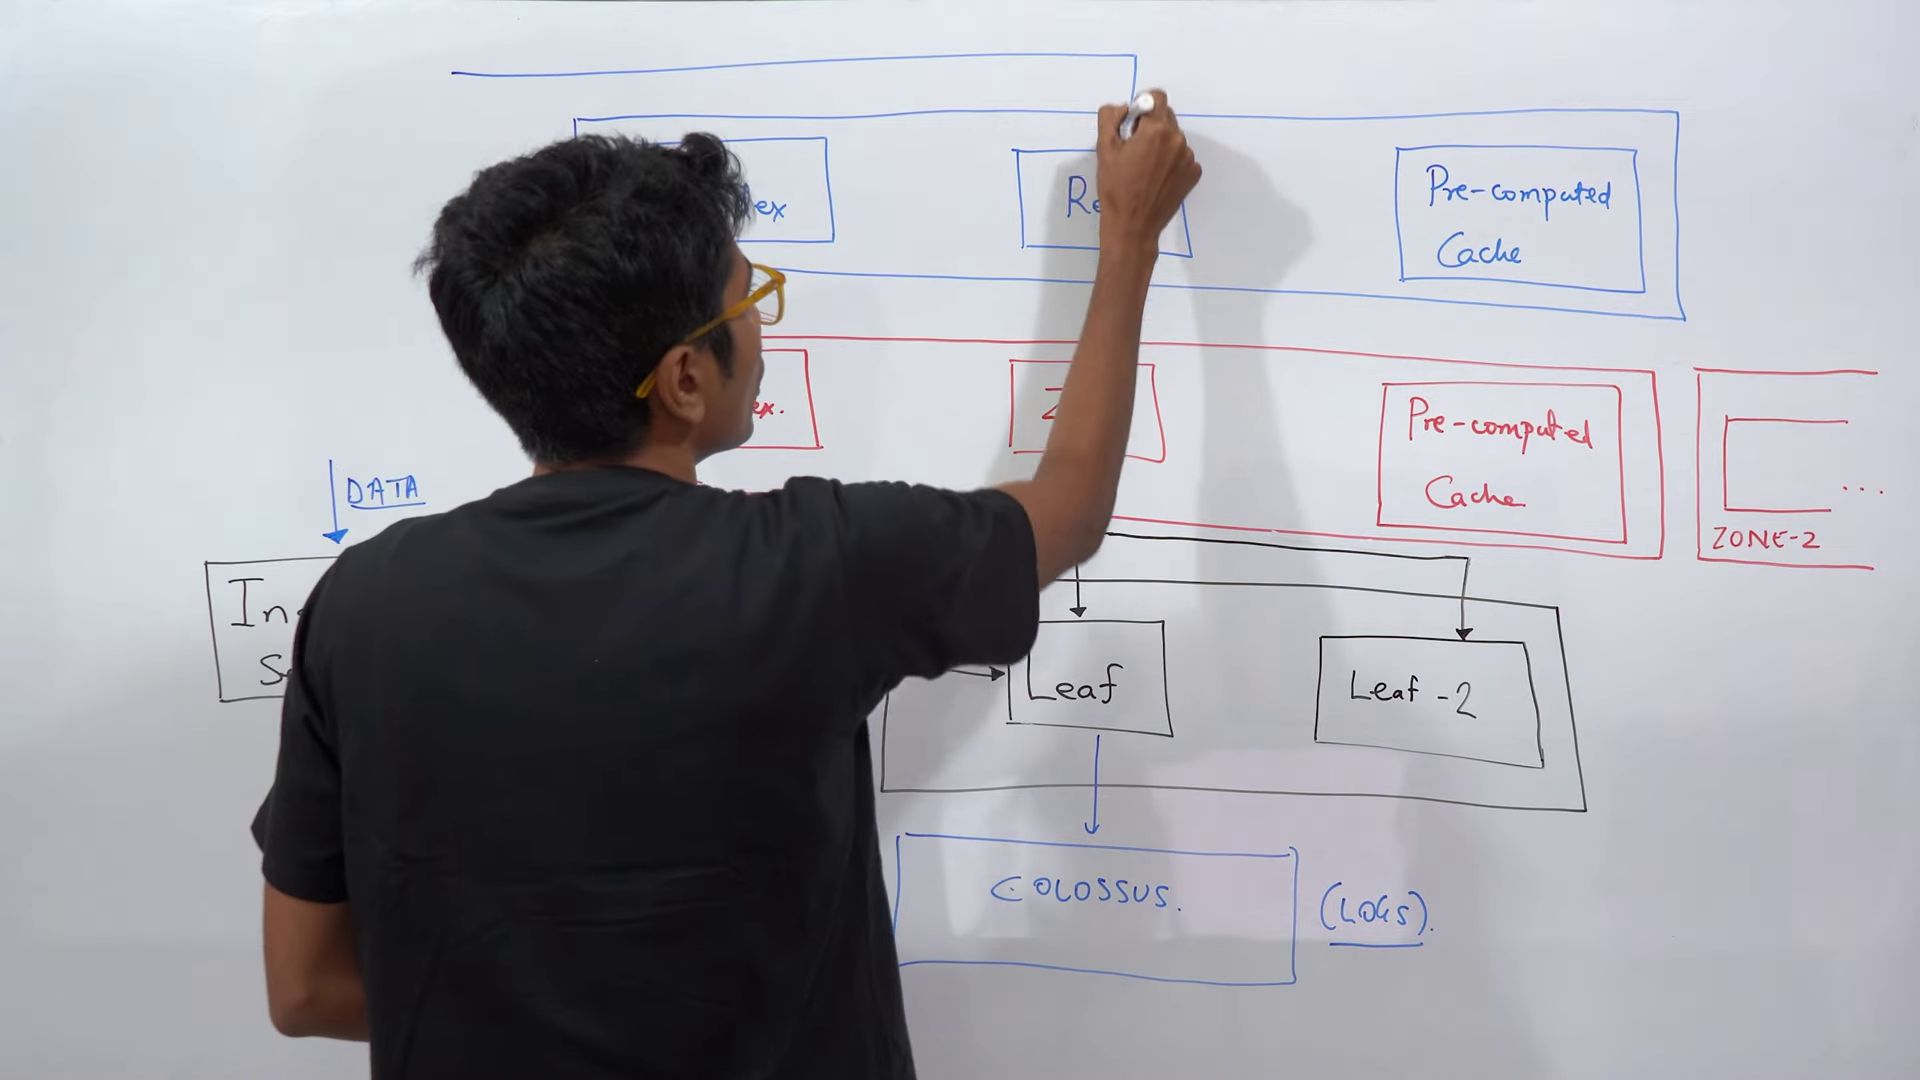 Pre-computed
Cache
Pre-computed
Cache
ZONE-2
...
DATA
Leaf
Leaf -2
COLOSSUS.
(LOGS).